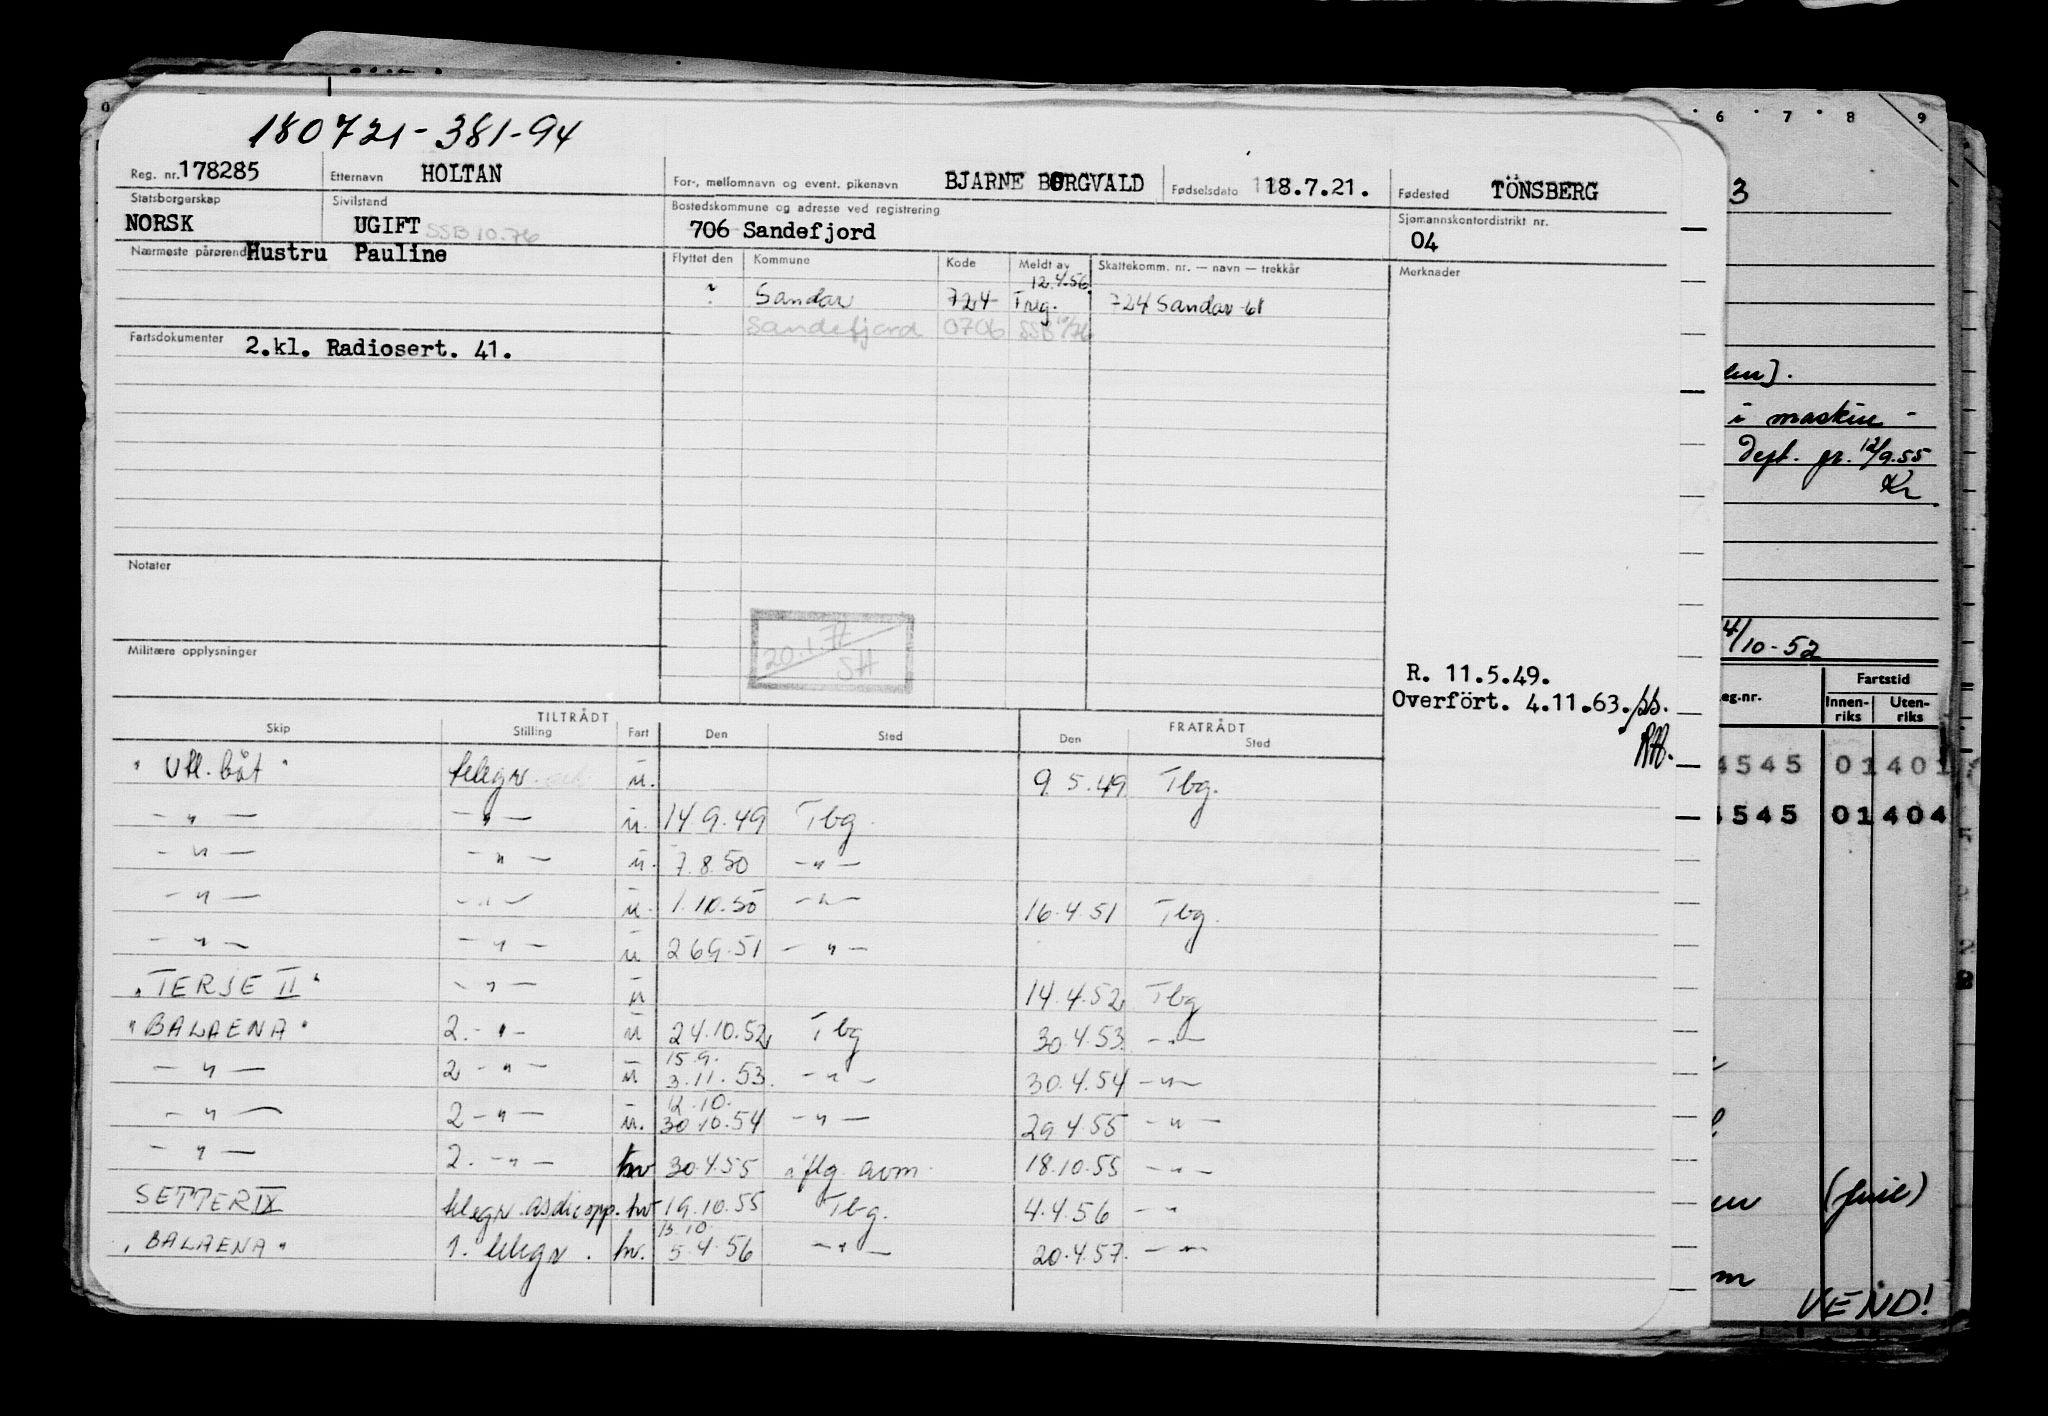 180721-381-94
Reg. nr. 178285 Etternavn HOLTAN For-, mellomnavn og event. pikenavn BJARNE BORGVALD Fødselsdato 18.7.21. Fødested TÖNSBERG
Statsborgerskap NORSK Sivilstand UGIFT SSB 10.76 Bostedskommune og adresse ved registrering 706 Sandefjord Sjømannskontordistrikt nr. 04
Nærmeste pårørende Hustru Pauline
Flyttet den Kommune Kode Meldt av Skattekomm. nr. — navn — trekkår Merknader
12.4.56.
? Sandar 724 Treg. 724 Sandar -61
Sandefjord 0706 SSB 10/76
Fartsdokumenter 2.kl. Radiosert. 41.
Notater
20.1.77
SH
Militære opplysninger
R. 11.5.49.
Overfört. 4.11.63./ss.
TILTRÅDT FRATRÅDT
Skip Stilling Fart Den Sted Den Sted
" Utl. båt " telegr. u. 9.5.49 Tbg.
— " — — " — u. 14 9.49 Tbg.
— " — — " — u. 7.8.50 — " —
— " — — " — u. 1.10.50 — " — 16.4.51 Tbg.
— " — — " — u 26 9.51 — " —
"TERJE II" — " — u 14.4.52 Tbg
"BALAENA" 2. - " - u 24.10.52 Tbg 30.4.53. — " —
15.9.
— " — 2 - " — u 3.11.53. — " — 30.4.54 — " —
12.10.
— " — 2 - " — u. 30.10.54 — " — 29.4.55 — " —
— " — 2. - " — hv 30.4.55 i flg. avm. 18.10.55 — " —
SETTER IX telegr. asdicopp. hv 19.10.55 Tbg. 4.4.56 — " —
13.10
"BALAENA" 1. telegr. hv. 5.4.56 — " — 20.4.57. — " —
6 7 8 9
3
i maskin -
Dept. gr. 12/9.55
Kr
4/10-52
eg.nr. Fartstid
Innen-riks Uten-riks
4545 01 401
4545 01 404
VEND!